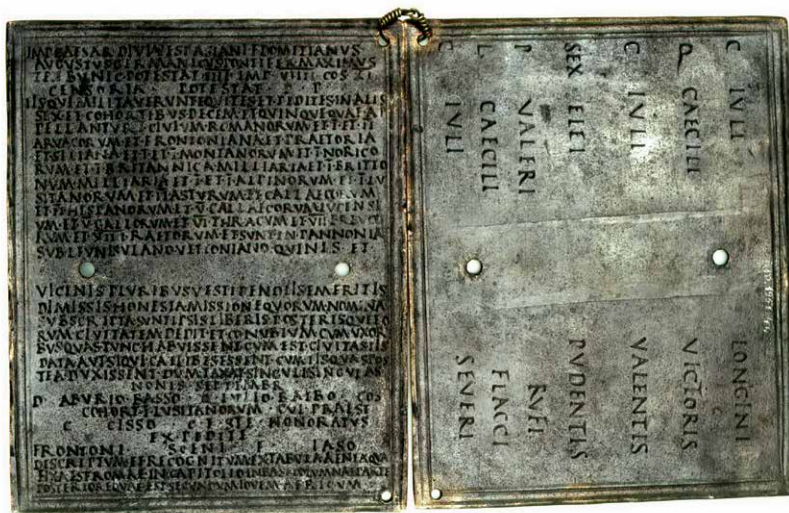 IMP CAESAR DIVI VESPASIANI F DOMITIANVS
AVGVSTVS GERMANICVS PONTIFEX MAXIMVS
TRIBVNIC POTESTAT IIII IMP VIIII COS XI
CENSORIA POTESTAT P P
IIS QVI MILITAVERVNT EQVITES ET PEDITES IN ALIS
SEX ET COHORTIBVS DECEM ET QVINQVE QVAE AP
PELLANTVR I CIVIVM ROMANORVM ET I ET II
ARVACORVM ET FRONTONIANA ET PRAETORIA
ET SILIANA ET I ET I MONTANORVM ET I NORICO
RVM ET I BRITANNICA MILLIARIA ET I BRITTO
NVM MILLIARIA ET I ET I ALPINORVM ET I LV
SITANORVM ET II ASTVRVM ET CALLAECORVM
ET II HISPANORVM ET V CALLAECORVM LVCENSI
VM ET V GALLORVM ET VI THRACVM ET VII BREVCO
RVM ET VIII RAETORVM ET SVNT IN PANNONIA
SVB L FVNISVLANO VETTONIANO QVINIS ET
VICINIS PLVRIBVSVE STIPENDIIS EMERITIS
DIMISSIS HONESTA MISSIONE QVORVM NOMINA
SVBSCRIPTA SVNT IPSIS LIBERIS POSTERISQVE EO
RVM CIVITATEM DEDIT ET CONVBIVM CVM VXORI
BVS QVAS TVNC HABVISSENT CVM EST CIVITAS IIS
DATA AVT SIQVI CAELIBES ESSENT CVM IIS QVAS POS
TEA DVXISSENT DVMTAXAT SINGVLI SINGVLAS
NONIS SEPTEMBR
D ABVRIO BASSO Q IVLIO BALBO COS
COHORT I LVSITANORVM CVI PRAEST
C CISSO C F STE HONORATVS
EXPEDITI
FRONTONI SCENI F IASO
DESCRIPTVM ET RECOGNITVM EX TABVLA AENEA QVAE
FIXA EST ROMAE IN CAPITOLIO IN BASI COLVMNAE PARTE
POSTERIORE QVAE EST SECVNDVM IOVEM AFRICVM
C IVLI LONGINI
P CAECILI VICTORIS
C IVLI VALENTIS
SEX ELEI PVDENTIS
P VALERI RVFI
L CAECILI FLACCI
C IVLI SEVERI